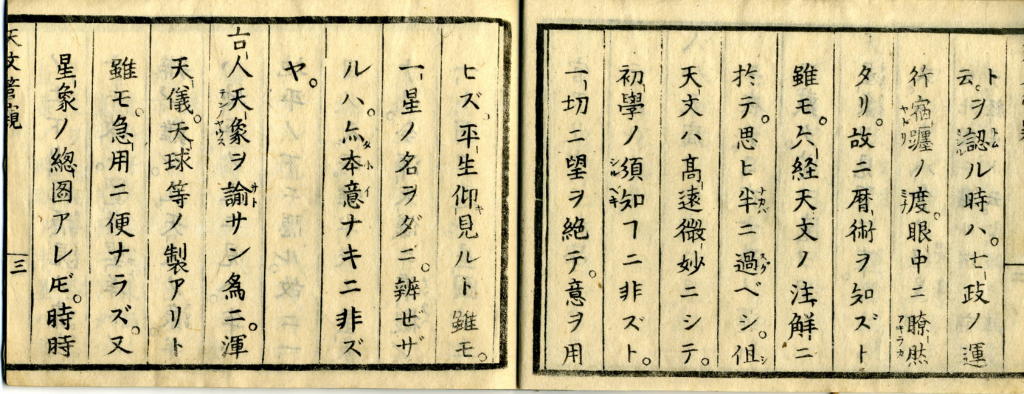 ト云ヲ認ル時ハ。七政ノ運
行宿躔ノ度。眼中ニ瞭然
タリ。故ニ暦術ヲ知ズト
雖モ。六経天文ノ注解ニ
於テ。思ヒ半ニ過ベシ。但シ
天文ハ高遠微妙ニシテ。
初學ノ須知フニ非ズト。
一切ニ望ヲ絶テ。意ヲ用
ヒズ。平生仰見ルト雖モ。
一星ノ名ヲダニ。辨ゼザ
ルハ。亦本意ナキニ非ズ
ヤ。
古人天象ヲ諭サン為ニ。渾
天儀。天球等ノ製アリト
雖モ。急用ニ便ナラズ。又
星象ノ總圖アレ𪜈。時時
天文管窺
三